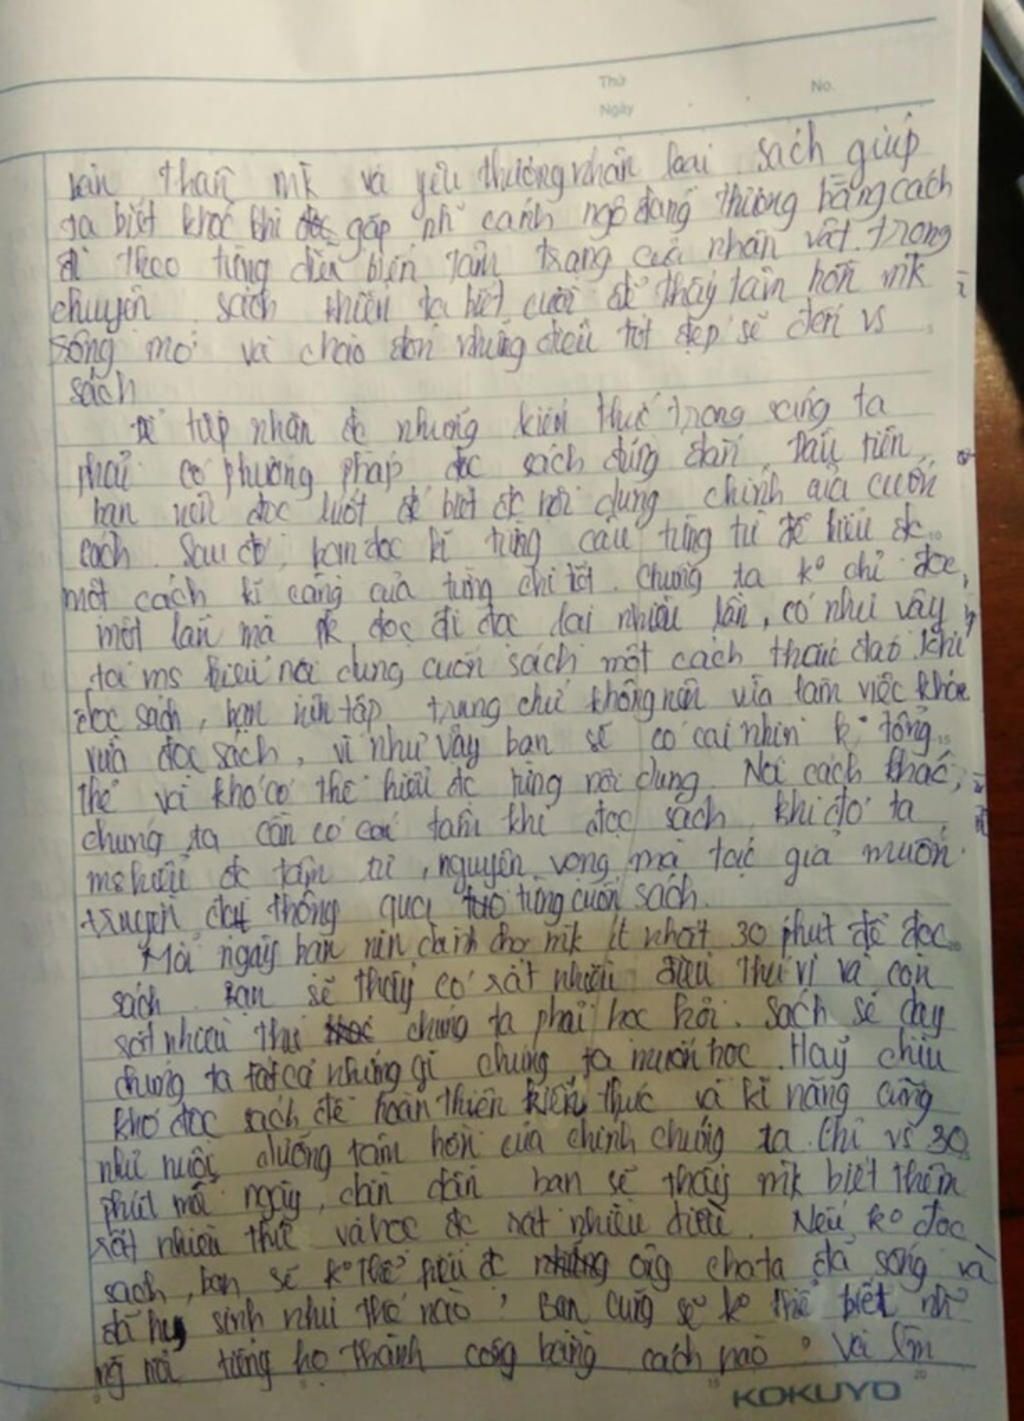 Thứ
No.
Ngày
bản thân mk và yêu thương nhân loại. Sách giúp
ta biết khóc khi gặp nh~ cảnh ngộ đáng thương bằng cách
đi theo từng diễn biến tâm trạng của nhân vật trong
chuyện. Sách khiến ta biết cười để thấy tâm hồn mk
sống mơ và chào đón những điều tốt đẹp sẽ đến vs
sách
Để tiếp nhận đc những kiến thức trong ta
phải có phương pháp đọc sách đúng đắn. Đầu tiên,
bạn nên đọc lướt để biết đc nội dung chính của cuốn
sách. Sau đó, bạn đọc kĩ từng câu từng từ để hiểu đc
một cách kĩ càng của từng chi tiết. Chúng ta ko chỉ đọc
một lần mà đọc đi đọc lại nhiều lần, có như vậy
ta ms hiểu nội dung cuốn sách một cách thấu đáo. Khi
đọc sách, bạn nên tập trung chứ không nên vừa làm việc khác
vừa đọc sách, vì như vậy bạn sẽ có cái nhìn ko tổng
thể và khó có thể hiểu đc từng nội dung. Nói cách khác,
chúng ta cần có cái tâm khi đọc sách, khi đó ta
ms hiểu đc tâm tư, nguyện vọng mà tác giả muốn
truyền đạt thông qua từng cuốn sách.
Mỗi ngày bạn nên dành cho mk ít nhất 30 phút để đọc
sách. Bạn sẽ thấy có rất nhiều điều thú vị và còn
rất nhiều thứ chúng ta phải học hỏi. Sách sẽ dạy
chúng ta tất cả những gì chúng ta muốn học. Hãy chịu
khó đọc sách để hoàn thiện kiến thức và kĩ năng cũng
như nuôi dưỡng tâm hồn của chính chúng ta. Chỉ vs 30
phút mỗi ngày, dần dần bạn sẽ thấy mk biết thêm
rất nhiều thứ và học đc rất nhiều điều. Nếu ko đọc
sách, bạn sẽ ko thể hiểu đc ông cha ta đã sống và
đã hy sinh như thế nào? Bạn cũng sẽ ko thể biết nh~
ng nổi tiếng họ thành công bằng cách nào? Và
KOKUYO